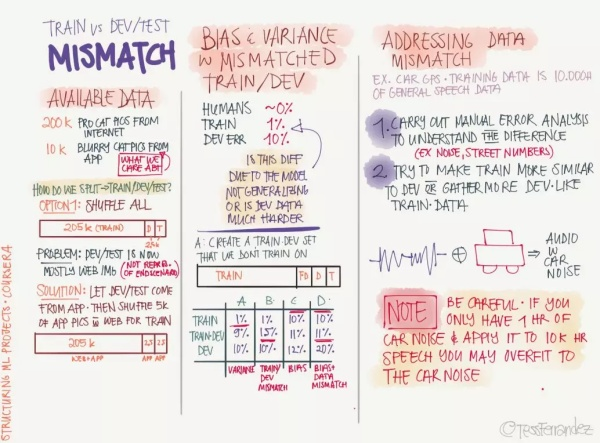 TRAIN vs DEV/TEST
MISMATCH
AVAILABLE DATA
200 k PRO CAT PICS FROM
INTERNET
10 k BLURRY CAT PICS FROM
APP
WHAT WE
CARE ABT
HOW DO WE SPLIT → TRAIN/DEV/TEST?
OPTION 1: SHUFFLE ALL
205 k (TRAIN) D T
2,5k
PROBLEM: DEV/TEST IS NOW
MOSTLY WEB IMG
(NOT REPR.
OF END SCENARIO)
SOLUTION: LET DEV/TEST COME
FROM APP. THEN SHUFFLE 5K
OF APP PICS W WEB FOR TRAIN
205 k 2,5 2,5
WEB + APP APP APP
STRUCTURING ML PROJECTS · COURSERA
BIAS & VARIANCE
W MISMATCHED
TRAIN/DEV
HUMANS ~0%
TRAIN 1%
DEV ERR 10%
IS THIS DIFF
DUE TO THE MODEL
NOT GENERALIZING
OR IS DEV DATA
MUCH HARDER
A: CREATE A TRAIN-DEV SET
THAT WE DON'T TRAIN ON
TRAIN D T
A B C D
TRAIN 1% 1% 10% 10%
TRAIN-DEV 9% 1.5% 11% 11%
DEV 10% 10% 12% 20%
VARIANCE TRAIN/DEV MISMATCH BIAS BIAS+DATA MISMATCH
ADDRESSING DATA
MISMATCH
EX. CAR GPS · TRAINING DATA IS 10.000H
OF GENERAL SPEECH DATA
1. CARRY OUT MANUAL ERROR ANALYSIS
TO UNDERSTAND THE DIFFERENCE
(EX NOISE, STREET NUMBERS)
2 TRY TO MAKE TRAIN MORE SIMILAR
TO DEV OR GATHER MORE DEV-LIKE
TRAIN-DATA
AUDIO
W CAR
NOISE
NOTE BE CAREFUL · IF YOU
ONLY HAVE 1 HR OF
CAR NOISE & APPLY IT TO 10K HR
SPEECH YOU MAY OVERFIT TO
THE CAR NOISE
©TessFerrandez